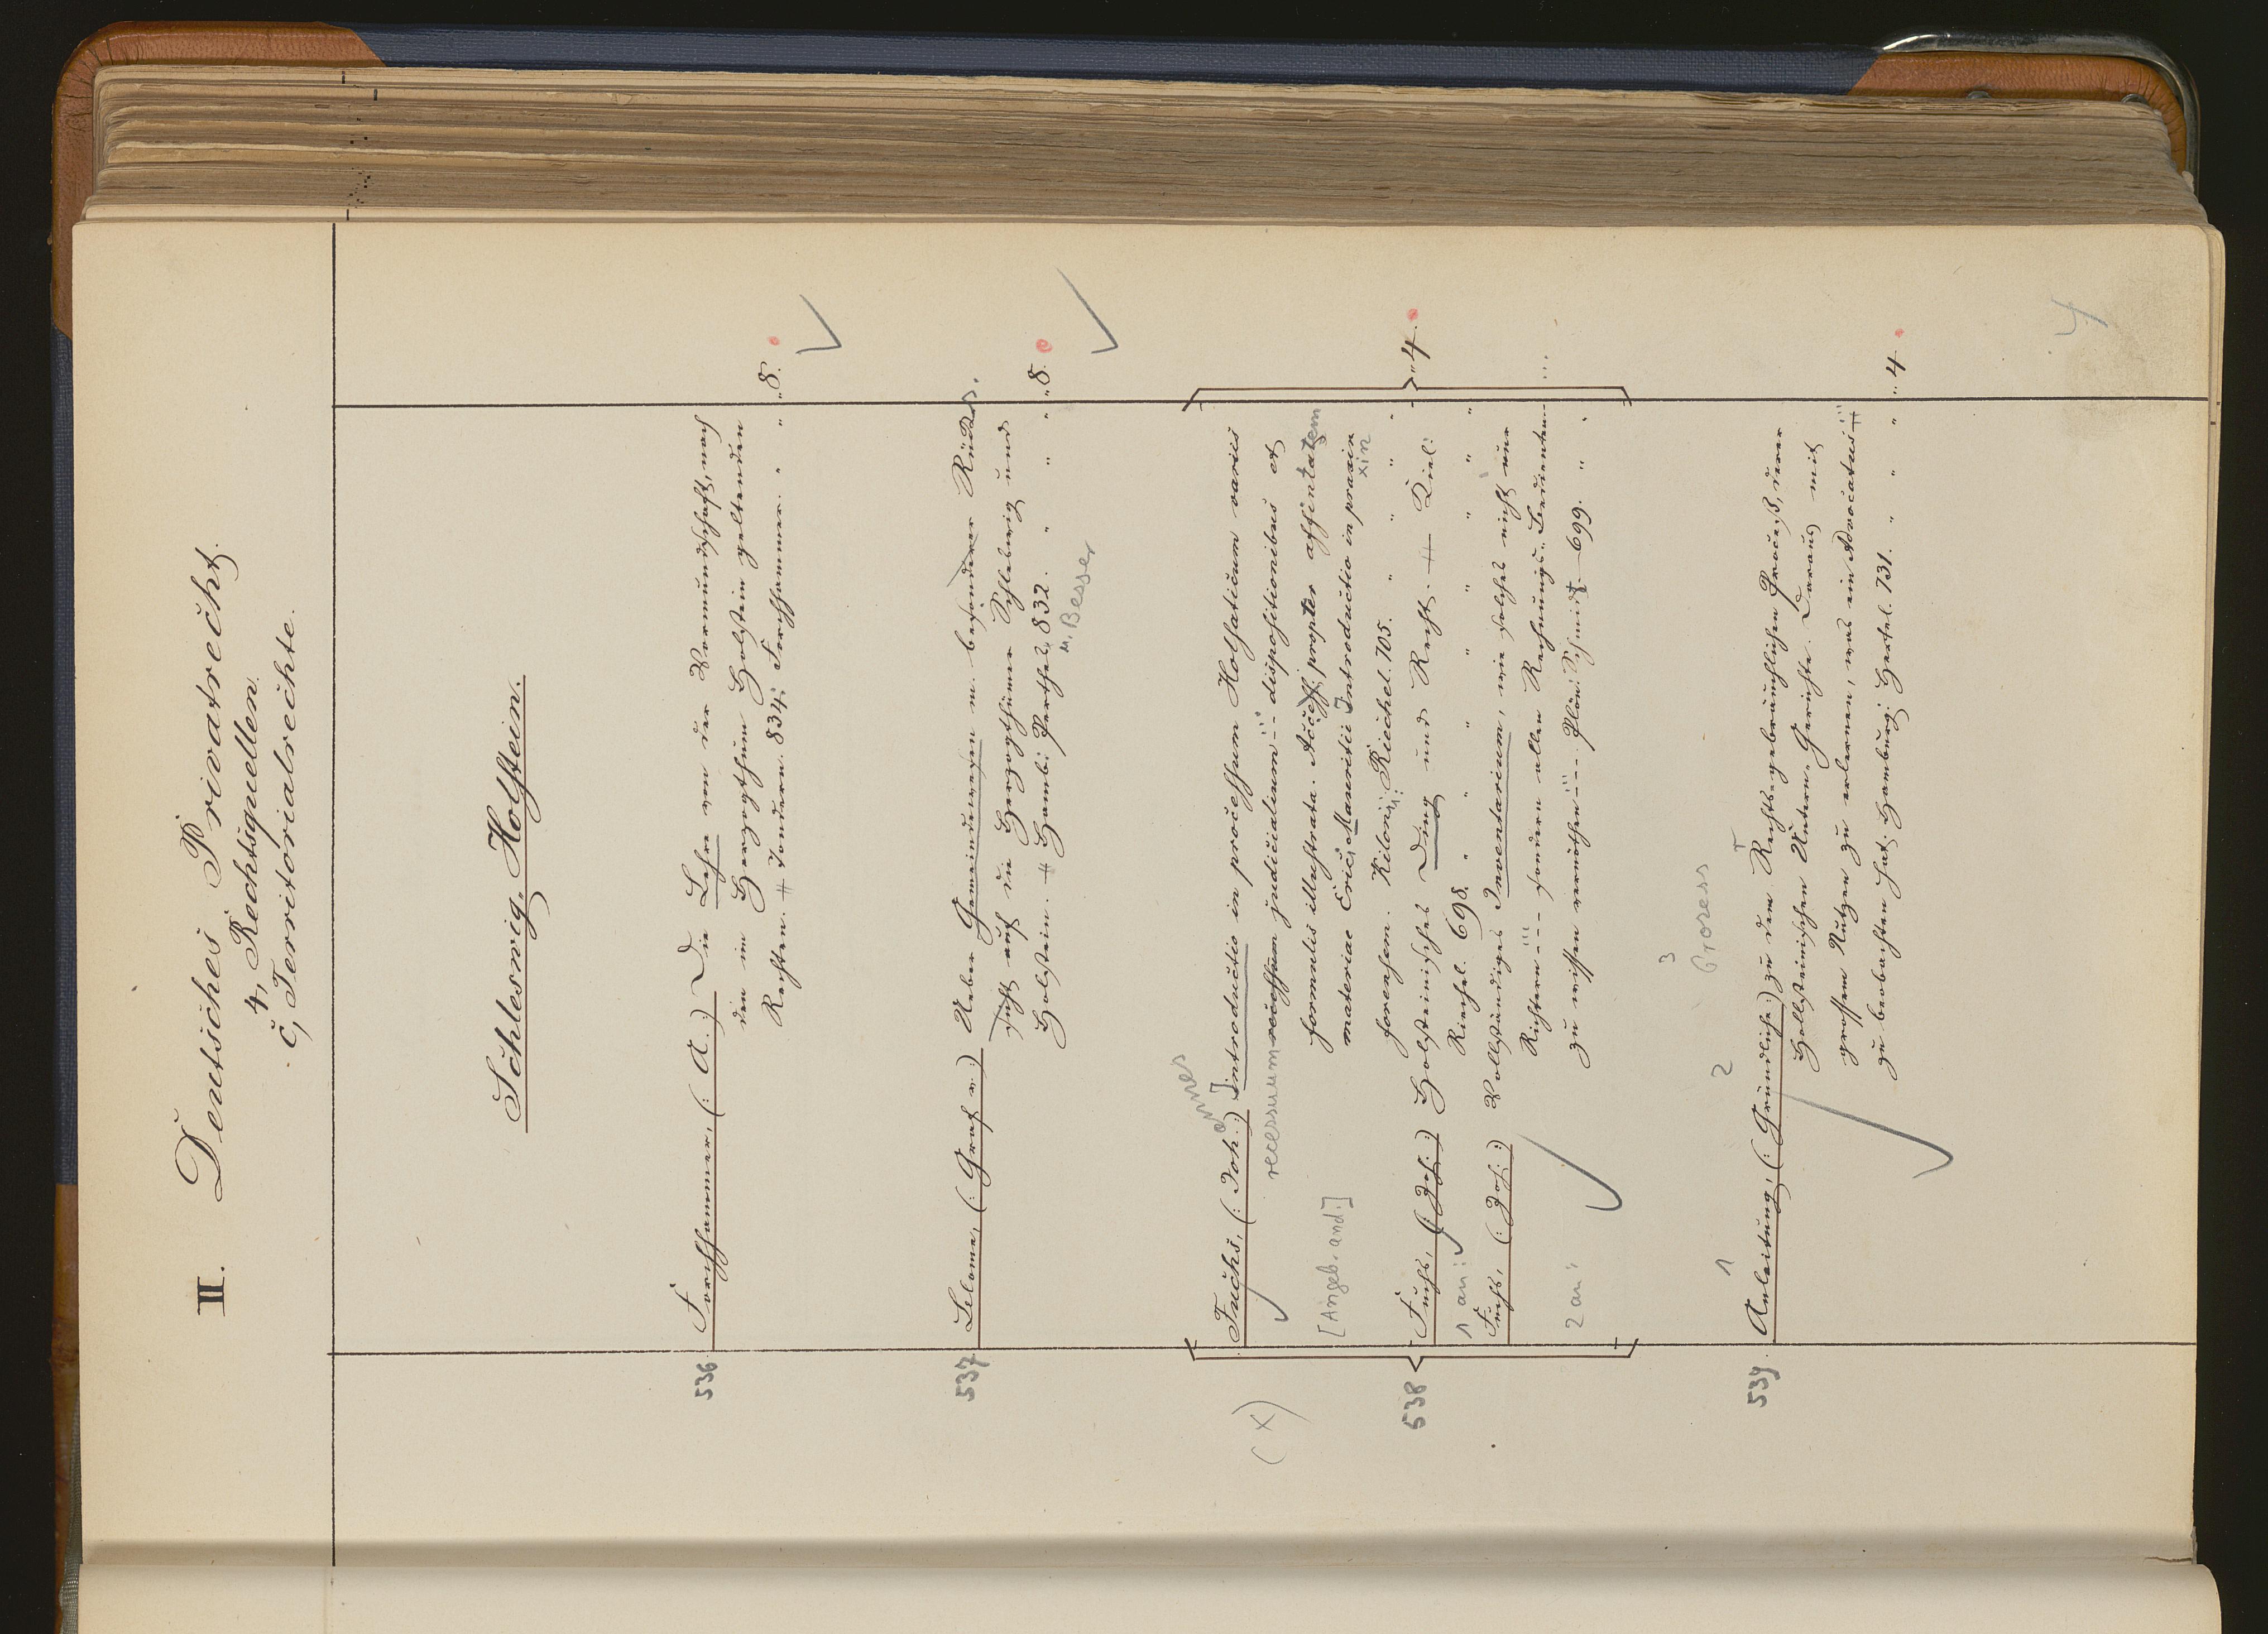 II. Deutsches Privatrecht.
4, Rechtsquellen.
c, Territorialrechte.
Schleswig-Holstein.
536 Forchhammer, (: A.:) Die Lehre von der Vormundschaft, nach
den im Herzogthum Holstein geltenden
Rechten. # Tondern. 834. Forchhammer. " " " 8.
537 (: Graf v.:) Ueber Gemeindewesen m. besonderer Rücks.
sicht auf die Herzogthümer Schleswig und
Holstein. # Hamb: Perthes 832. " " " 8.
u. Besser
Fuchs, (: Joh.:) Introductio in processum Holsaticum variis
recessum recessuum judicialium --- dispositionibus et
formulis illustrata. propter affinitatem
[Angeb. and:] materiae Erici Mauritii Introductio in praxin
xin
(x) forensem. Kilonii: Riechel. 705. " " "
538 Fuchs, (: Joh:) Holsteinisches Ding und Recht. # Kiel: " 4.
1 an: Riechel. 698. " " " " " "
Fuchs, (: Joh:) Vollständiges Inventarium, wie solches nicht nur
Richtern --- sondern allen Rechnungs-Bedienten
2 an: zu wissen vonnöthen --- Plön: Schmidt. 699. " "
1 2 3
Prozess
539 Anleitung, (: Gründliche:) zu dem Rechts-gebräuchlichen Process, derer
Hollsteinischen Untern-Gerichte. Daraus mit
grossem Nutzen zu erlernen, was ein Advocatus #
zu beobachten hat. Hamburg: Hertel. 731. " " " " 4.